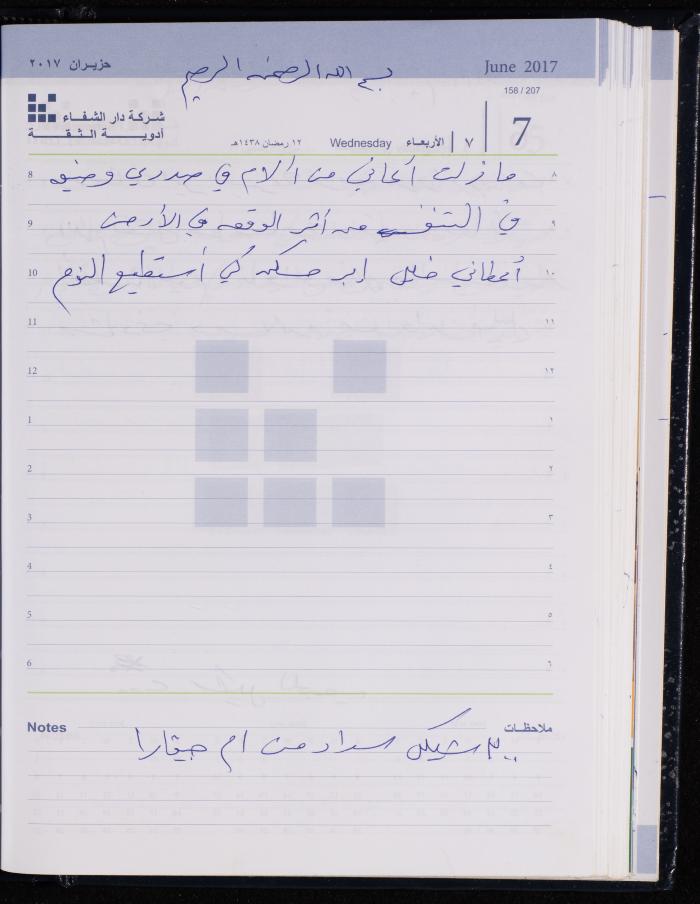 حزيران ٢٠١٧
June 2017
بسم الله الرحمن الرحيم
158 / 207
شركة دار الشفاء
أدويـــة الـثـقـــة
١٢ رمضان ١٤٣٨هـ
Wednesday
الأربعاء
٧
7
8 ما زلت أعاني من آلام في صدري وضيق ٨
9 في التنفس من أثر الوقعه في الأرض ٩
10 أعطاني خليل إبر مسكنه كي أستطيع النوم ١٠
11 ١١
12 ١٢
1 ١
2 ٢
3 ٣
4 ٤
5 ٥
6 ٦
Notes ملاحظات
٣٠٠ شيكل سداد من ام جيفارا